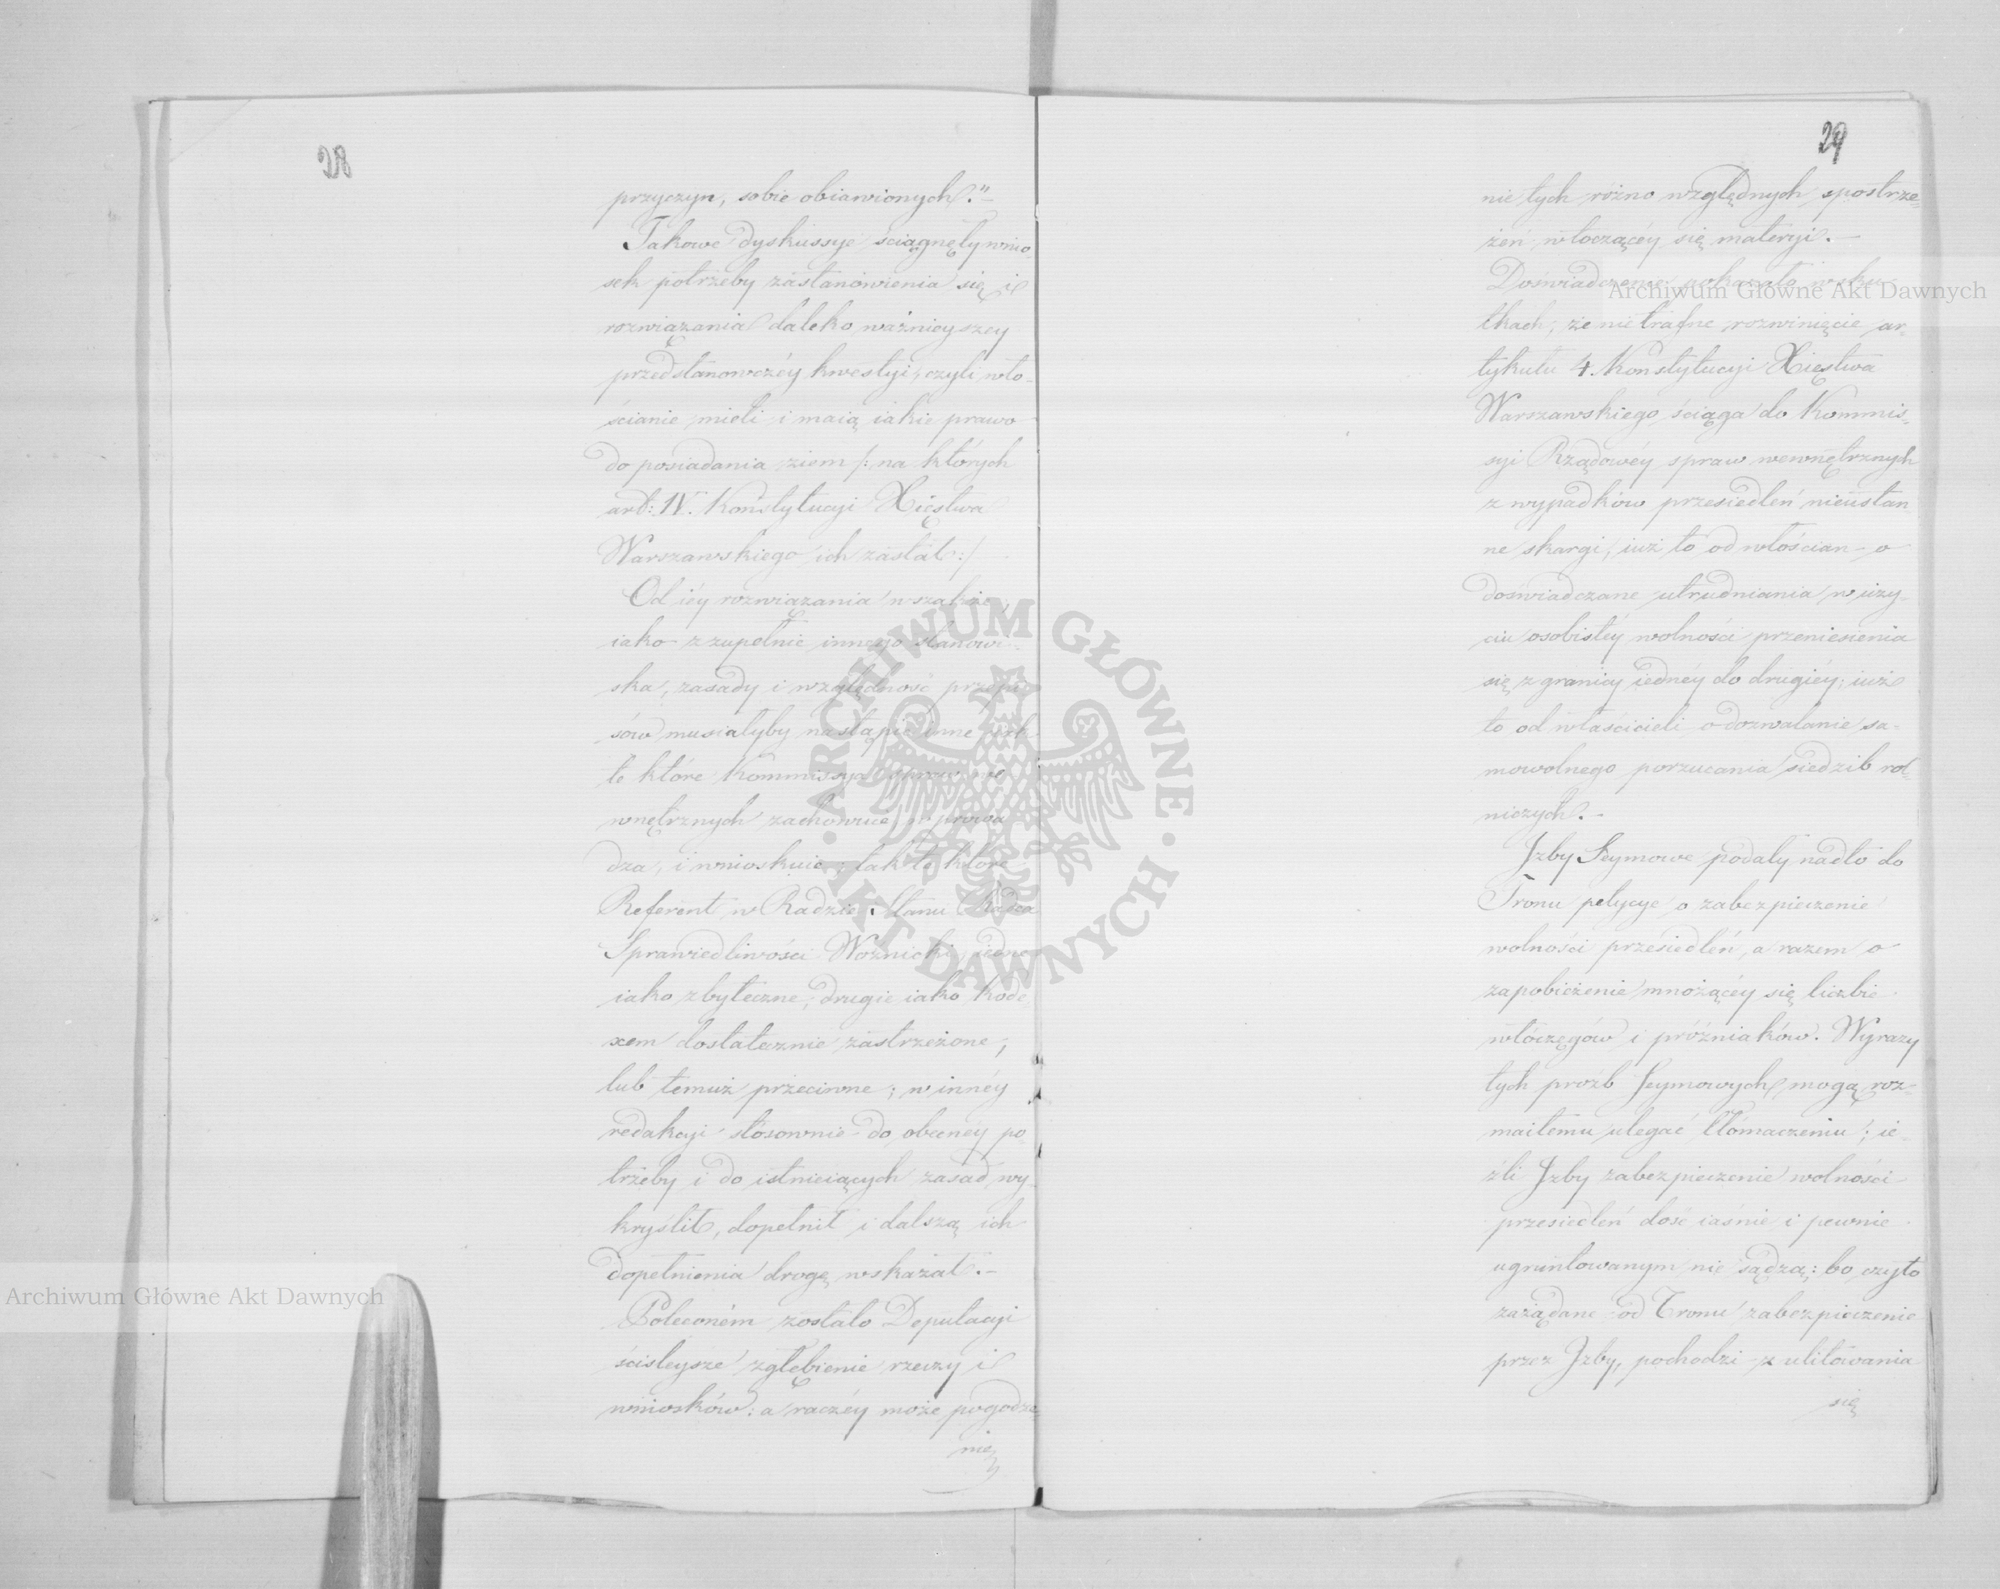 28
przyczyn, sobie obiawionych."—
Takowe dyskussye ściągnęły wnio-
sek potrzeby zastanowienia się i
rozwiązania daleko ważnieyszey
przedstanowczéy kwestyi, czyli wło-
ścianie mieli i maią iakie prawo
do posiadania ziem /: na których
art: IV. Konstytucyi Xięstwa
Warszawskiego ich zastał :/
Od iéy rozwiązania wszakże,
iako z zupełnie innego stanowi-
ska, zasady i względność przepi-
sów musiałyby nastąpić inne, jak
te które Kommissya spraw we-
wnętrznych zachowuie, wprowa
dza, i wnioskuie; tak te które
Referent w Radzie Stanu Radca
Sprawiedliwości Woźnicki, iedne
iako zbyteczne, drugie iako Kode-
xem dostatecznie zastrzeżone,
lub temuż przeciwne; w innéy
redakcyi stósownie do obecnéy po-
trzeby i do istnieiących zasad wy-
kryślił, dopełnił i dalszą ich
dopełnienia drogę wskazał.—
Poleconém zostało Deputacyi
ściśleysze zgłębienie rzeczy i
wniosków: a raczéy może pogodze
nie
29
nie tych różno względnych spostrze-
żeń, włoczącéy się materyi.—
Doświadczenie pokazało w sku-
tkach, że nie trafne rozwinięcie ar-
tykułu 4. Konstytucyi Xięstwa
Warszawskiego, ściąga do Kommis-
syi Rządowéy spraw wewnętrznych
z wypadków przesiedleń nieustan-
ne skargi, iuż to od włościan o
doświadczane utrudniania w uży-
ciu osobistéy wolności przeniesienia
się z granicy iednéy do drugiéy; iuż
to od właścicieli o dozwalanie sa-
mowolnego porzucania siedzib rol-
niczych.—
Izby Seymowe podały nadto do
Tronu petycye o zabezpieczenie
wolności przesiedleń, a razem o
zapobieżenie mnożącéy się liczbie
włóczęgów i próżniaków. Wyrazy
tych proźb Seymowych mogą roz-
maitemu ulegać tłómaczeniu; ie-
żli Izby zabezpieczenie wolności
przesiedleń dość iaśnie i pewnie
ugruntowanym nie sądzą: bo czyto
zażądane od Tronu zabezpieczenie
przez Izby, pochodzi z ulitowania
się
Archiwum Główne Akt Dawnych
Archiwum Główne Akt Dawnych
ARCHIWUM GŁÓWNE · AKT DAWNYCH ·